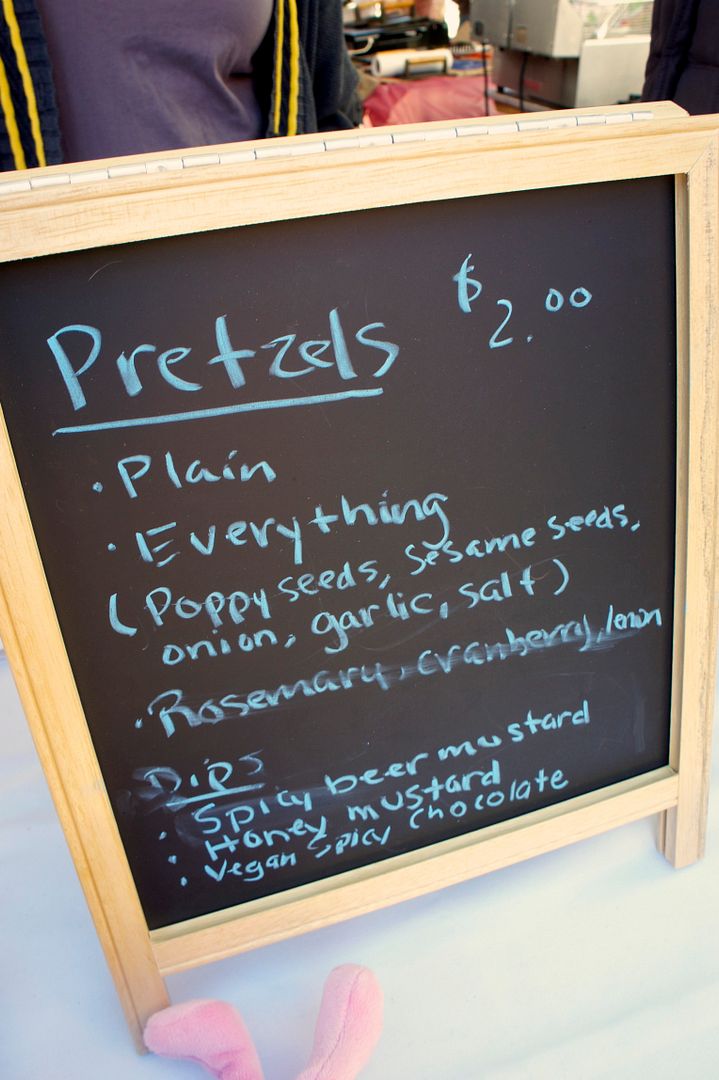 Pretzels $2.00
• Plain
• Everything
(Poppy seeds, sesame seeds,
onion, garlic, salt)
• Rosemary, cranberry, lemon
Dips
• Spicy beer mustard
• Honey mustard
• Vegan Spicy Chocolate